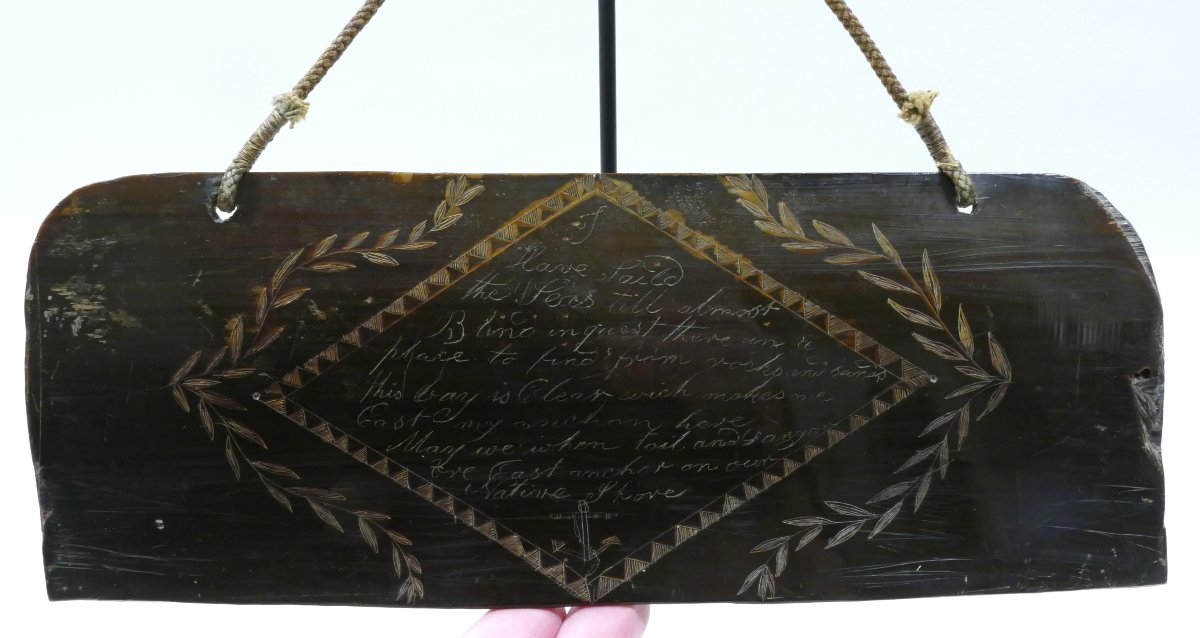 I
Have Saild
the Seas till almost
Blind in quest there in a
place to find from rocks and sands
this bay is Clear wich makes me
Cast my anchan here
May we when toil and danger
are Cast anchor on our
Native Shore